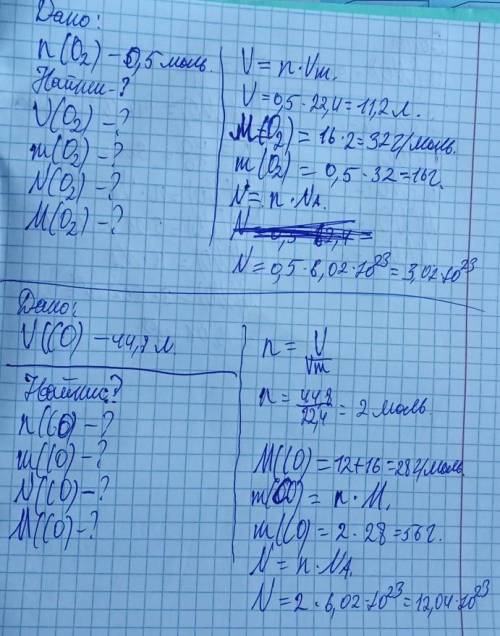 Дано:
n(O₂) – 0,5 моль.
Найти-?
V(O₂) – ?
m(O₂) – ?
N(O₂) – ?
M(O₂) – ?
V = n · Vm.
V = 0,5 · 22,4 = 11,2 л.
M(O₂) = 16 · 2 = 32 г/моль.
m(O₂) = 0,5 · 32 = 16 г.
N = n · NA.
N = 0,5 · 6,02 · 10²³ = 3,02 · 10²³
Дано:
V(CO) – 44,8 л.
Найти?
n(CO) – ?
m(CO) – ?
N(CO) – ?
M(CO) – ?
n = V/Vm
n = 44,8/22,4 = 2 моль
M(CO) = 12 + 16 = 28 г/моль.
m(CO) = n · M.
m(CO) = 2 · 28 = 56 г.
N = n · NA.
N = 2 · 6,02 · 10²³ = 12,04 · 10²³